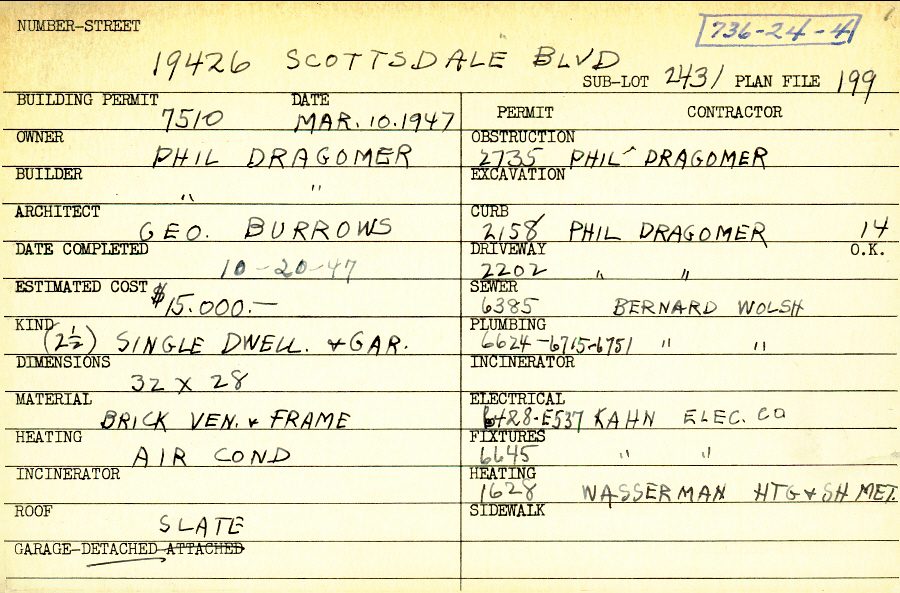 NUMBER-STREET
736-24-4
19426 SCOTTSDALE BLVD
SUB-LOT 2431 PLAN FILE 199
BUILDING PERMIT 7510 DATE MAR. 10. 1947
OWNER PHIL DRAGOMER
BUILDER " "
ARCHITECT GEO. BURROWS
DATE COMPLETED 10-20-47
ESTIMATED COST $15.000.—
KIND (2½) SINGLE DWELL. & GAR.
DIMENSIONS 32 X 28
MATERIAL BRICK VEN. & FRAME
HEATING AIR COND
INCINERATOR
ROOF SLATE
GARAGE-DETACHED ATTACHED
PERMIT CONTRACTOR
OBSTRUCTION 2735 PHIL DRAGOMER
EXCAVATION
CURB 2158 PHIL DRAGOMER 14
DRIVEWAY 2202 " " O.K.
SEWER 6385 BERNARD WOLSH
PLUMBING 6624-6715-6751 " "
INCINERATOR
ELECTRICAL 6428-E537 KAHN ELEC. CO
FIXTURES 6645 " "
HEATING 1628 WASSERMAN HTG & SH MET.
SIDEWALK